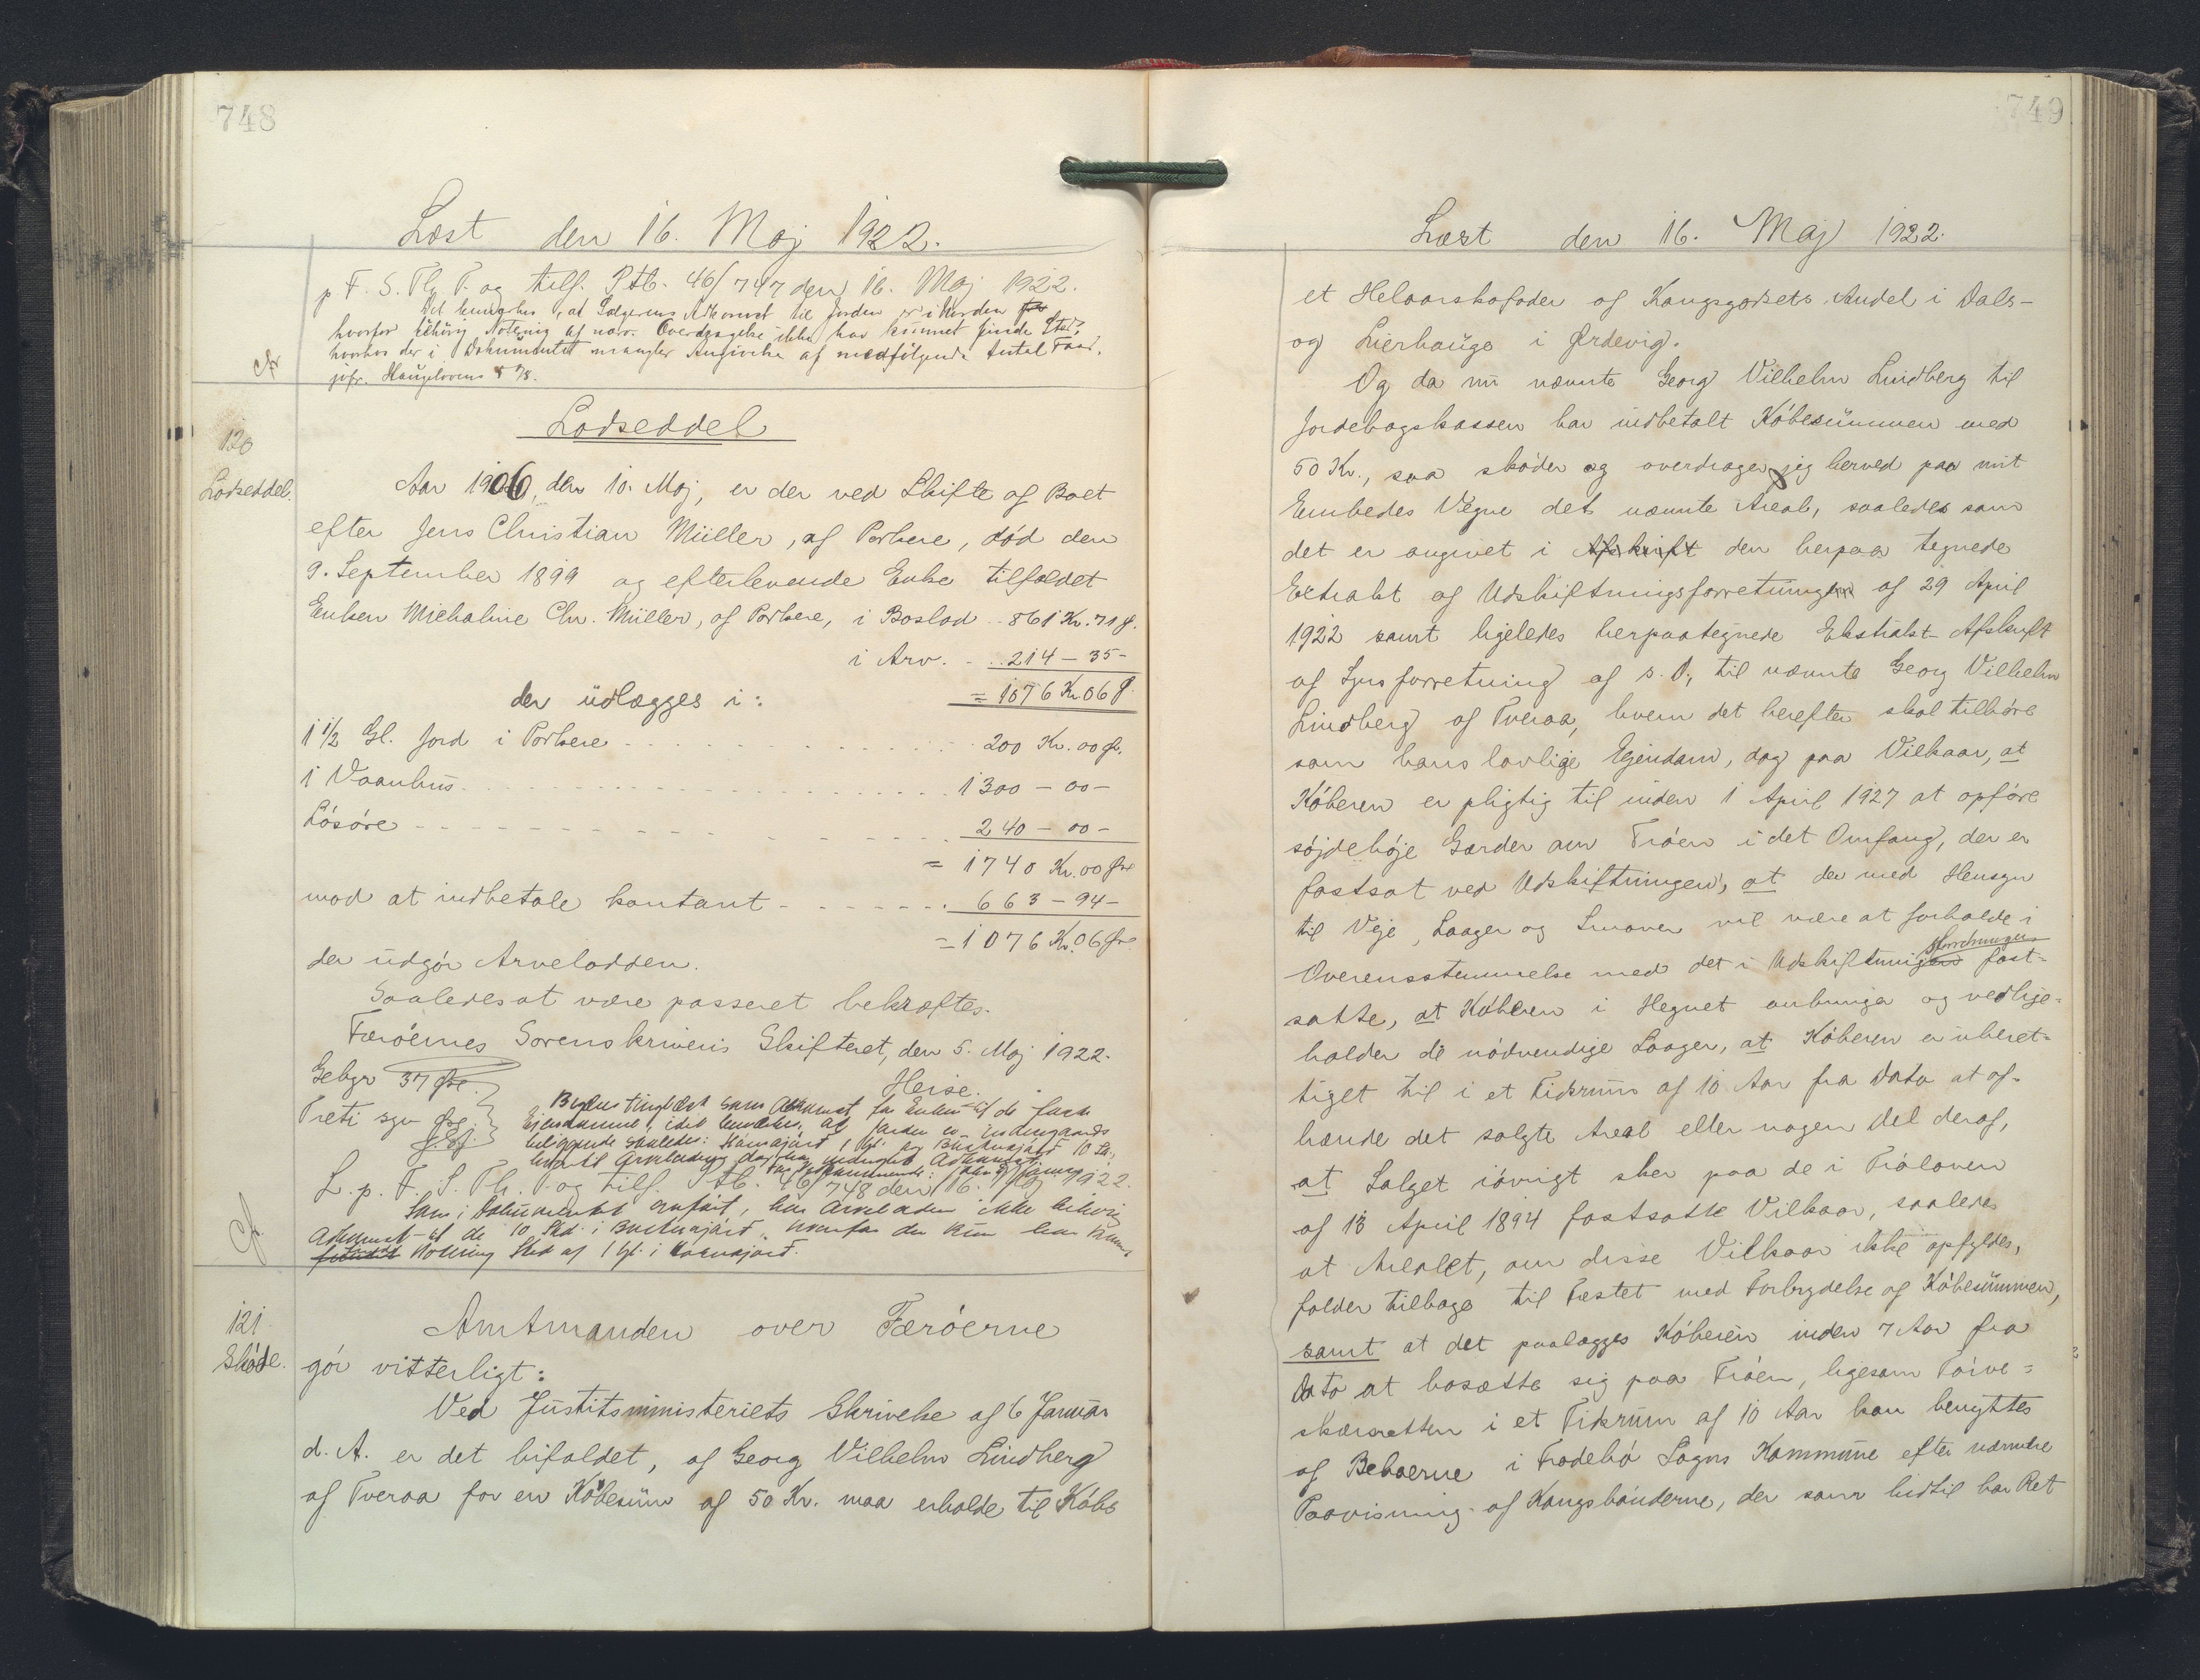 748
Læst den 16. Maj 1922.
p. F. S. Th. P. og tilf. Ptb. 46/747 den 16. Maj 1922.
Det bemærkes, at Sælgerens Adkomst til Jorden er i Orden
hvorfor behörig Notering af nærv. Overdragelse ikke har kunnet finde Sted,
hvorhos der i Dokumentet mangler Angivelse af medfölgende Antal Faar,
jvfr. Haugelovens §
Lodseddel
120
Lodseddel.
Aar 1906, den 10. Maj, er der ved Skifte af Boet
efter Jens Christian Müller, af Porkere, död den
9. September 1899 og efterlevende Enke tilfaldet
Enken Michaline Chr. Müller, af Porkere, i Boslod .. 861 Kr. 71 Ø.
i Arv. . . . 214 — 35 —
= 1076 Kr. 06 Ø.
der udlægges i:
1 1/2 Gl. Jord i Porkere . . . . 200 Kr. 00 Ø.
1 Vaanhus . . . . 1300 — 00 —
Lösöre . . . . 240 — 00 —
= 1740 Kr. 00 Øre
mod at indbetale kontant . . . . 663 — 94 —
= 1076 Kr. 06 Øre
der udgör Arvelodden.
Saaledes at være passeret bekræftes.
Færöernes Sorenskriveris Skifteret, den 5. Maj 1922.
Heise.
Gebyr 37 Øre
Treti syv Øre
Begæres tinglæst som Adkomst for Enken af de faste
Ejendomme, idet bemærkes, at Jorden er indmgaards
beliggende saaledes: 1 Gl. og 10 Sk.,
L. p. F. S. Th. P. og tilf. Ptb. 46/748 den 16. Maj 1922.
Som i Dokumentet anført, har Arveladeren ikke behörig
Adkomst til de 10 Skd. i hvorfor der kun har kunnet
Notering Sted af 1 Gl. i
121.
Sköde.
Amtmanden over Færöerne
gör vitterligt:
Ved Justitsministeriets Skrivelse af 6 Januar
d. A. er det bifaldet, af Georg Vilhelm Lindberg
af Tveraa for en Köbesum af 50 Kr. maa erholde til Köbs
749
Læst den 16. Maj 1922.
et Helaarskofoder af Kongsgodsets Andel i Dals-
og Lierhauge i Ørdevig.
Og da nu nævnte Georg Vilhelm Lindberg til
Jordebogskassen har indbetalt Köbesummen med
50 Kr., saa sköder og overdrager jeg herved paa mit
Embedes Vegne det nævnte Areal, saaledes som
det er angivet i Afskrift den herpaa tegnede
Extrakt af Udskiftningsforretningen af 29 April
1922 samt ligeledes herpaategnede Ekstrakt-Afskrift
af Synsforretning af s. D., til nævnte Georg Vilhelm
Lindberg af Tveraa, hvem det herefter skal tilhöre
som hans lovlige Ejendom, dog paa Vilkaar, at
Köberen er pligtig til inden 1 April 1927 at opföre
söjdehöje Gærder om Tröen i det Omfang, der er
fastsat ved Udskiftningen, at der med Hensyn
til Veje, Laager og Smover vil være at forholde i
Overensstemmelse med det i Udskiftningsforretningen fast-
satte, at Köberen i Hegnet anbringer og vedlige-
holder de nödvendige Laager, at Köberen er uberet-
tiget til i et Tidsrum af 10 Aar fra Dato at af-
hænde det solgte Areal eller nogen Del deraf,
at Salget iövrigt sker paa de i Tröloven
af 13 April 1894 fastsatte Vilkaar, saaledes
at Arealet, om disse Vilkaar ikke opfyldes,
falder tilbage til Fæstet med Forbrydelse af Köbesummen,
samt at det paalægges Köberen inden 7 Aar fra
Dato at bosætte sig paa Tröen, ligesom Törve-
skæreretten i et Tidsrum af 10 Aar kan benyttes
af Beboerne i Frodebö Sogns Kommune efter nærmere
Paavisning af Kongsbönderne, der som hidtil har Ret